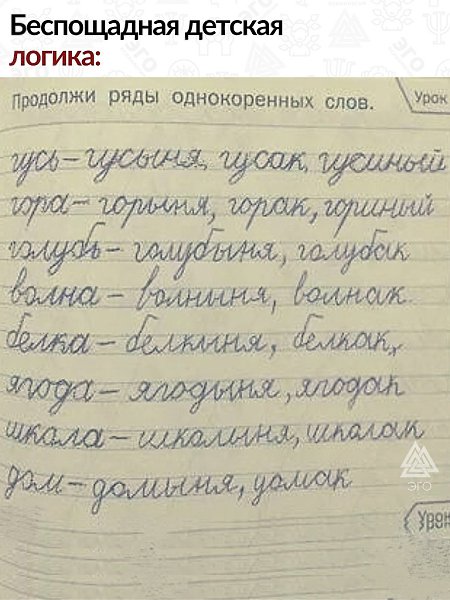 Беспощадная детская
логика:
Продолжи ряды однокоренных слов.
Урок
гусь – гусыня, гусак, гусиный
гора – горыня, горак, гориный
голубь – голубыня, голубак
волна – волныня, волнак
белка – белкыня, белкак,
ягода – ягодыня, ягодак
школа – школыня, школак
дом – домыня, домак
ЭГО
Урок